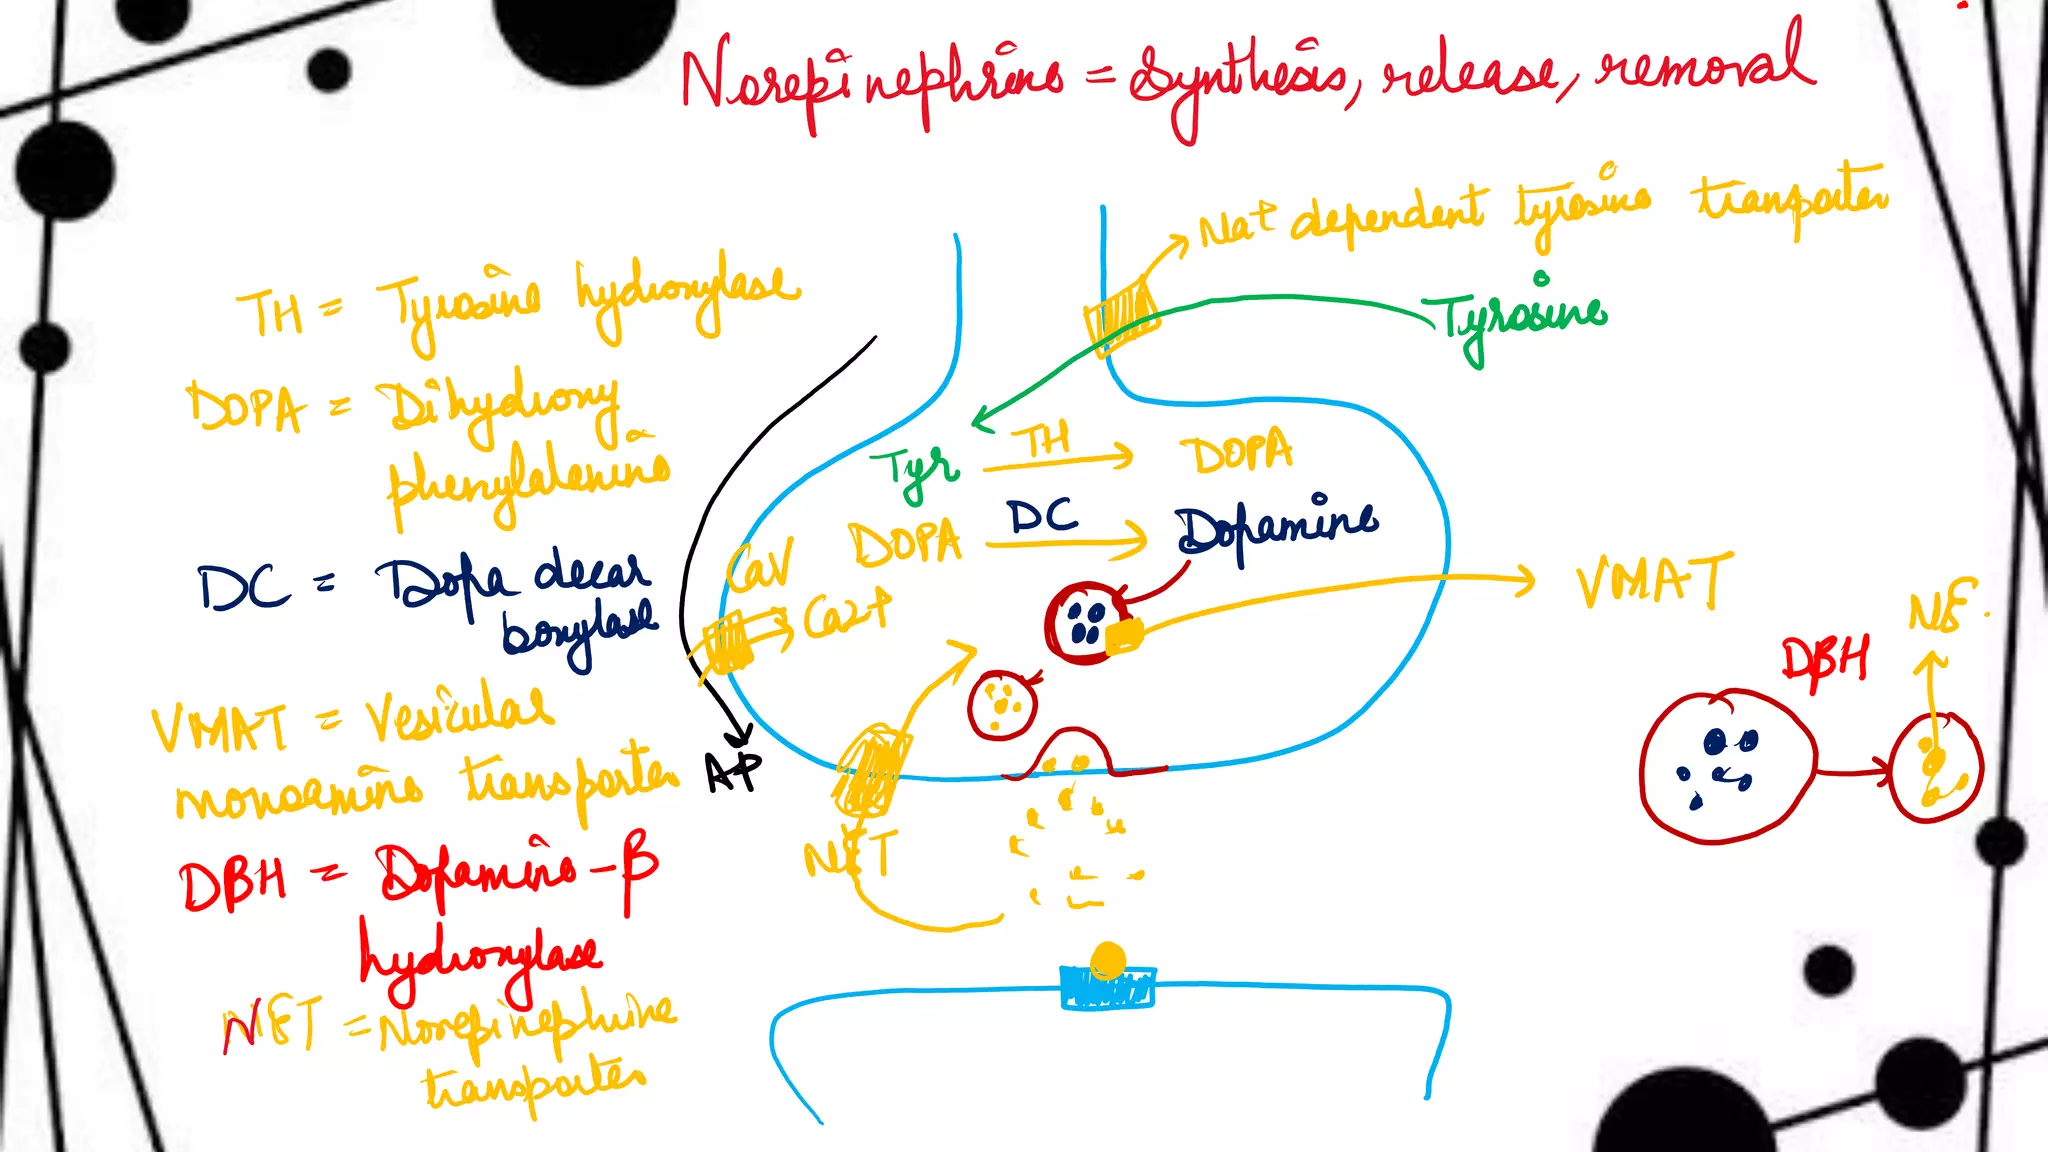 Norepinephrine = Synthesis, release, removal
Na+ dependent tyrosine transporter
Tyrosine
TH = Tyrosine hydroxylase
DOPA = Dihydroxy
phenylalanine
DC = Dopa decar
boxylase
VMAT = Vesicular
monoamine transporter
DBH = Dopamine-β
hydroxylase
NET = Norepinephrine
transporter
Tyr TH DOPA
DOPA DC Dopamine
CaV
Ca2+
AP
NET
VMAT
NE.
DβH